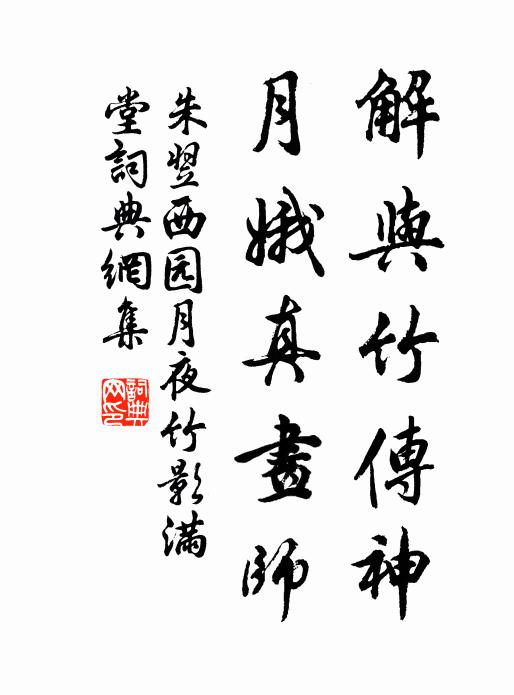 解與竹傳神
月娥真畫師
朱翌西园月夜竹影滿
堂詞典網集
詞典
网印